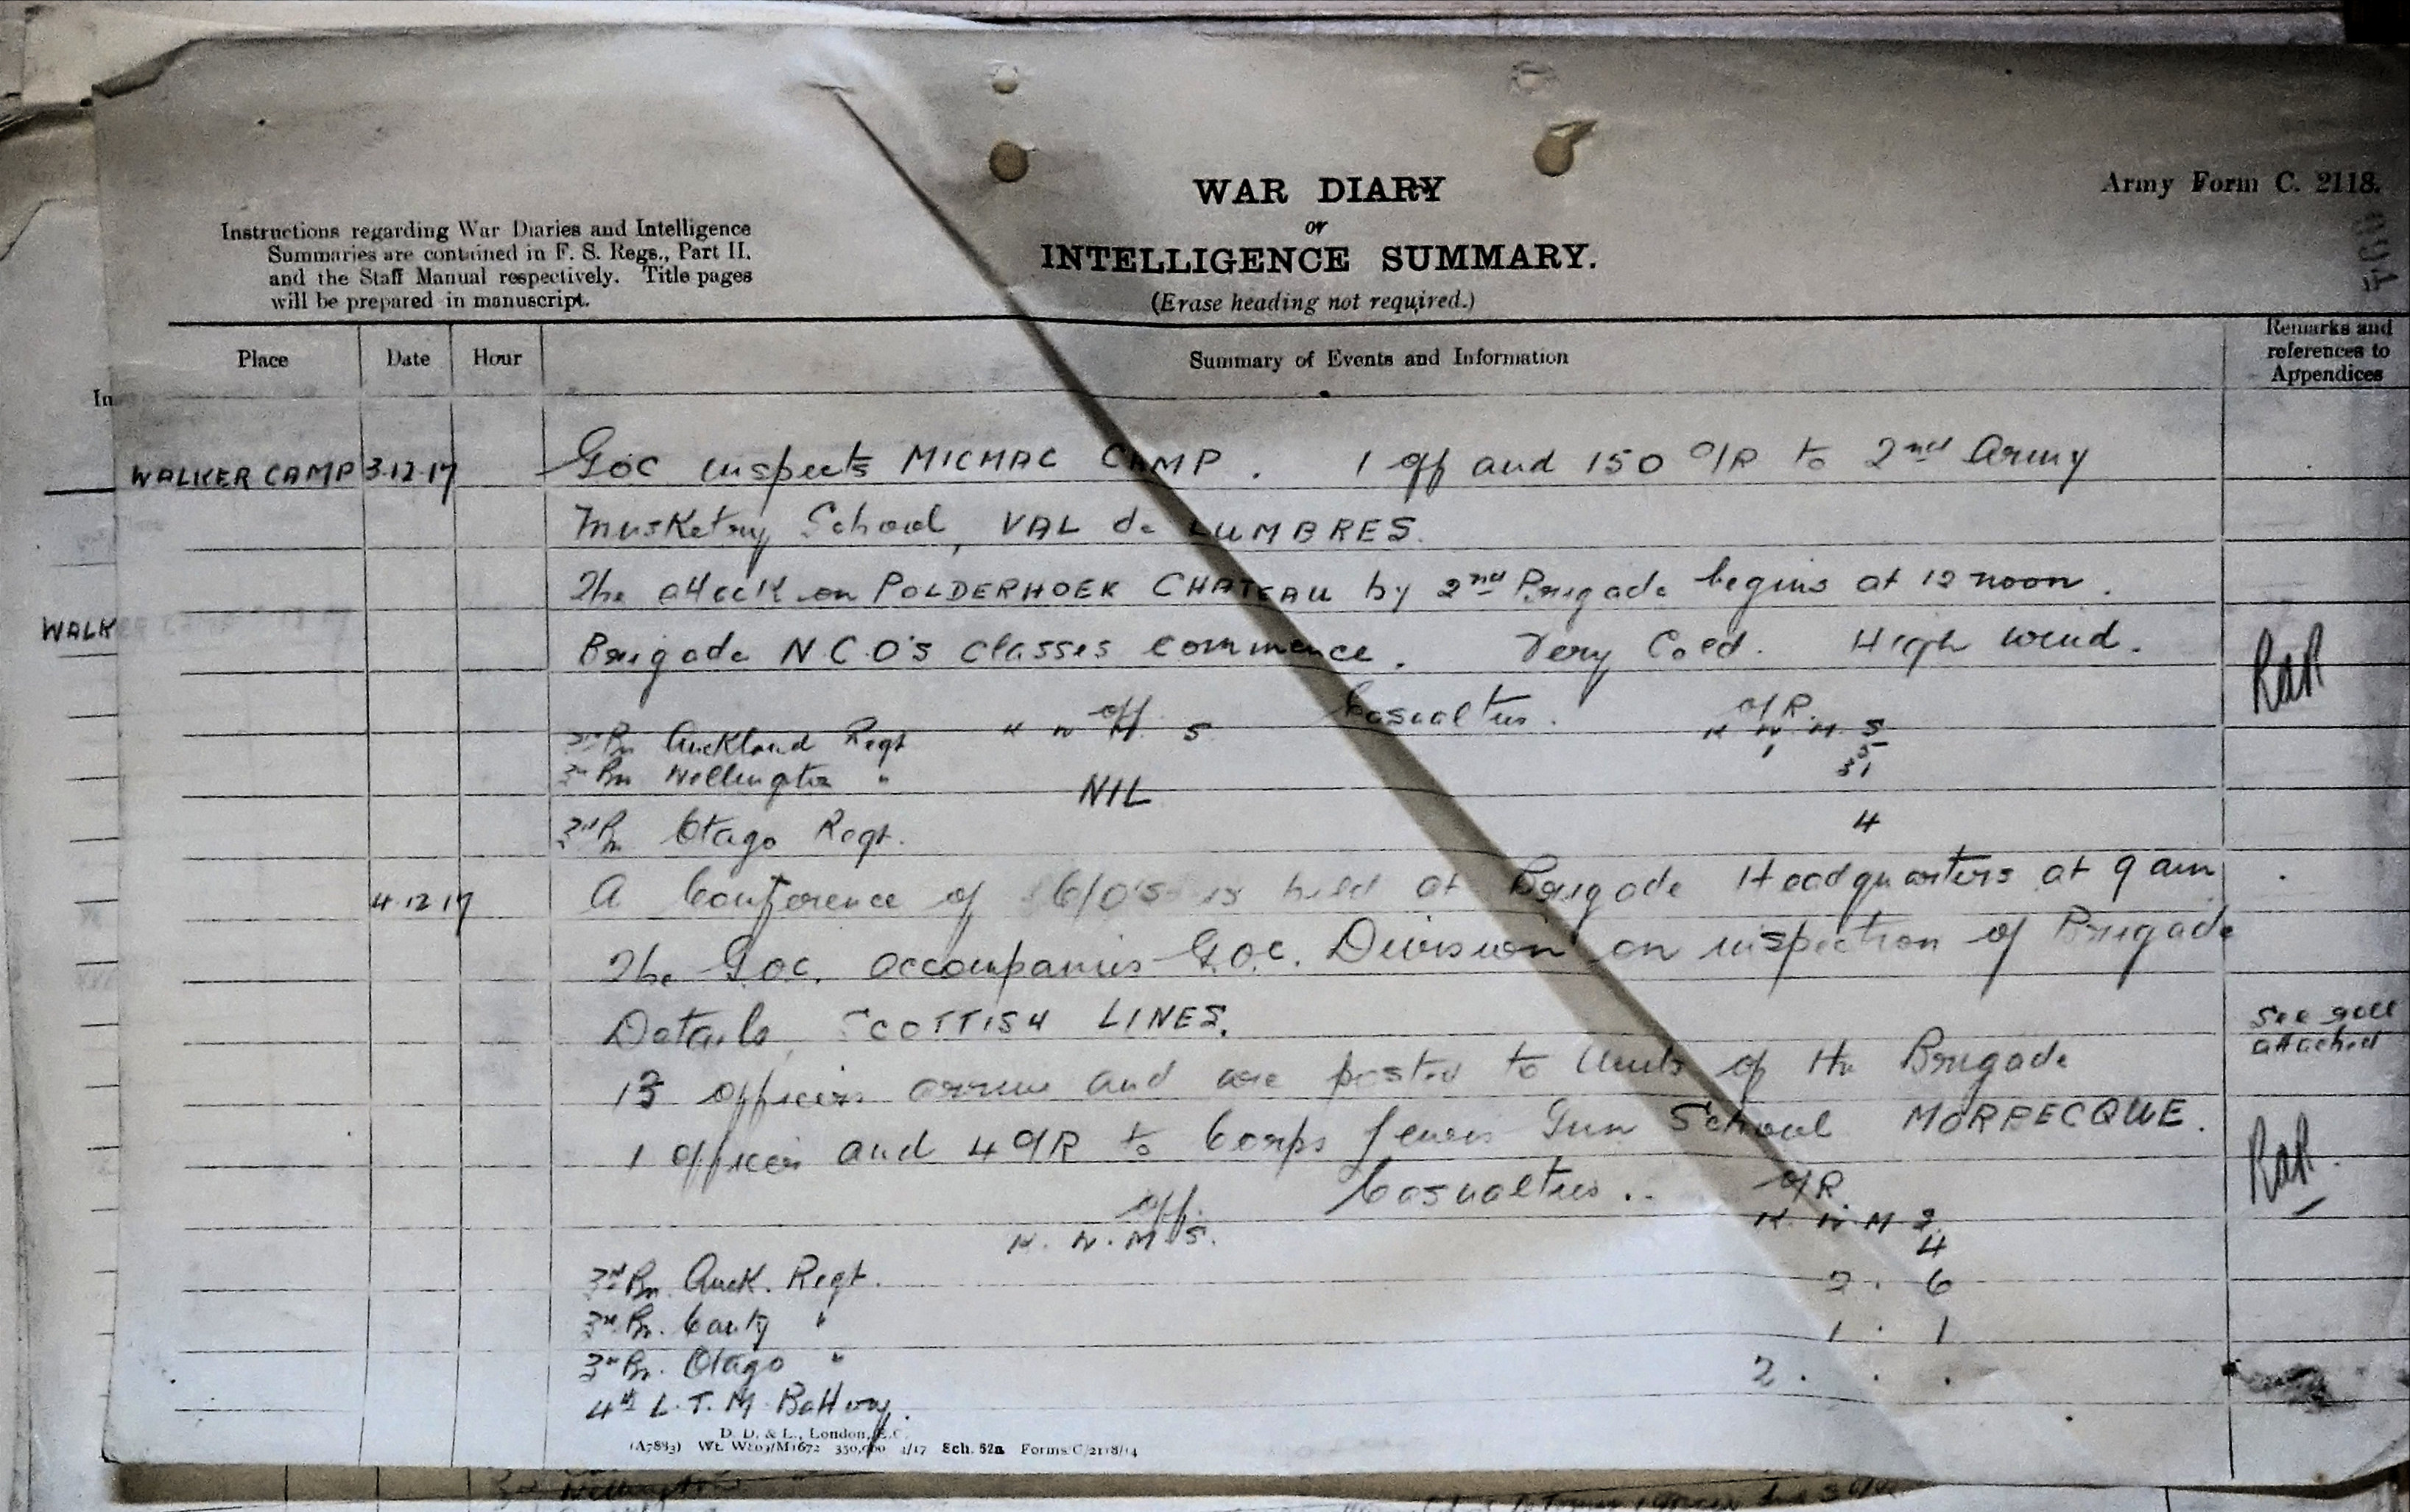 WAR DIARY
or
INTELLIGENCE SUMMARY.
(Erase heading not required.)
Army Form C. 2118.
Instructions regarding War Diaries and Intelligence
Summaries are contained in F. S. Regs., Part II.
and the Staff Manual respectively. Title pages
will be prepared in manuscript.
Place Date Hour Summary of Events and Information Remarks and references to Appendices
WALKER CAMP 3.12.17 GOC inspects MICMAC CAMP. 1 off and 150 O/R to 2nd Army
Musketry School, VAL de LUMBRES.
The attack on POLDERHOEK CHATEAU by 2nd Brigade begins at 12 noon.
Brigade NCO's classes commence. Very Cold. High wind.
RaR
off Casualties. O/R.
K W M S K W M S
3rd Bn Auckland Regt 1 5
3rd Bn Wellington " 31
NIL
3rd Bn Otago Regt. 4
4.12.17 A Conference of C/O's is held at Brigade Headquarters at 9 am
The G.O.C. accompanies G.O.C. Division on inspection of Brigade
Details, SCOTTISH LINES.
See roll attached
13 officers arrive and are posted to Units of the Brigade
1 officer and 4 O/R to Corps Lewis Gun School MORBECQUE.
RaR.
off. Casualties.. O/R
K. W. M. S. K. W. M S.
4
3rd Bn. Auck. Regt. 2 . 6
3rd Bn. Canty " 1 . 1
3rd Bn. Otago " 2 . . .
4th L.T.M. Battery.
D. D. & L., London, E.C.
(A7883) Wt. W809/M1672 350,000 4/17 Sch. 52a Forms/C/2118/14
In
WALK
Wellington